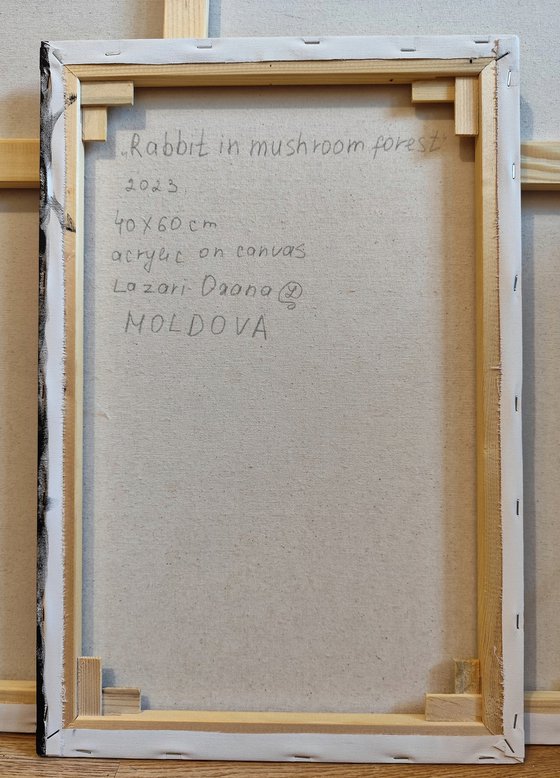 „Rabbit in mushroom forest"
2023.
40X60 cm
acrylic on canvas
Lazari Daana
MOLDOVA